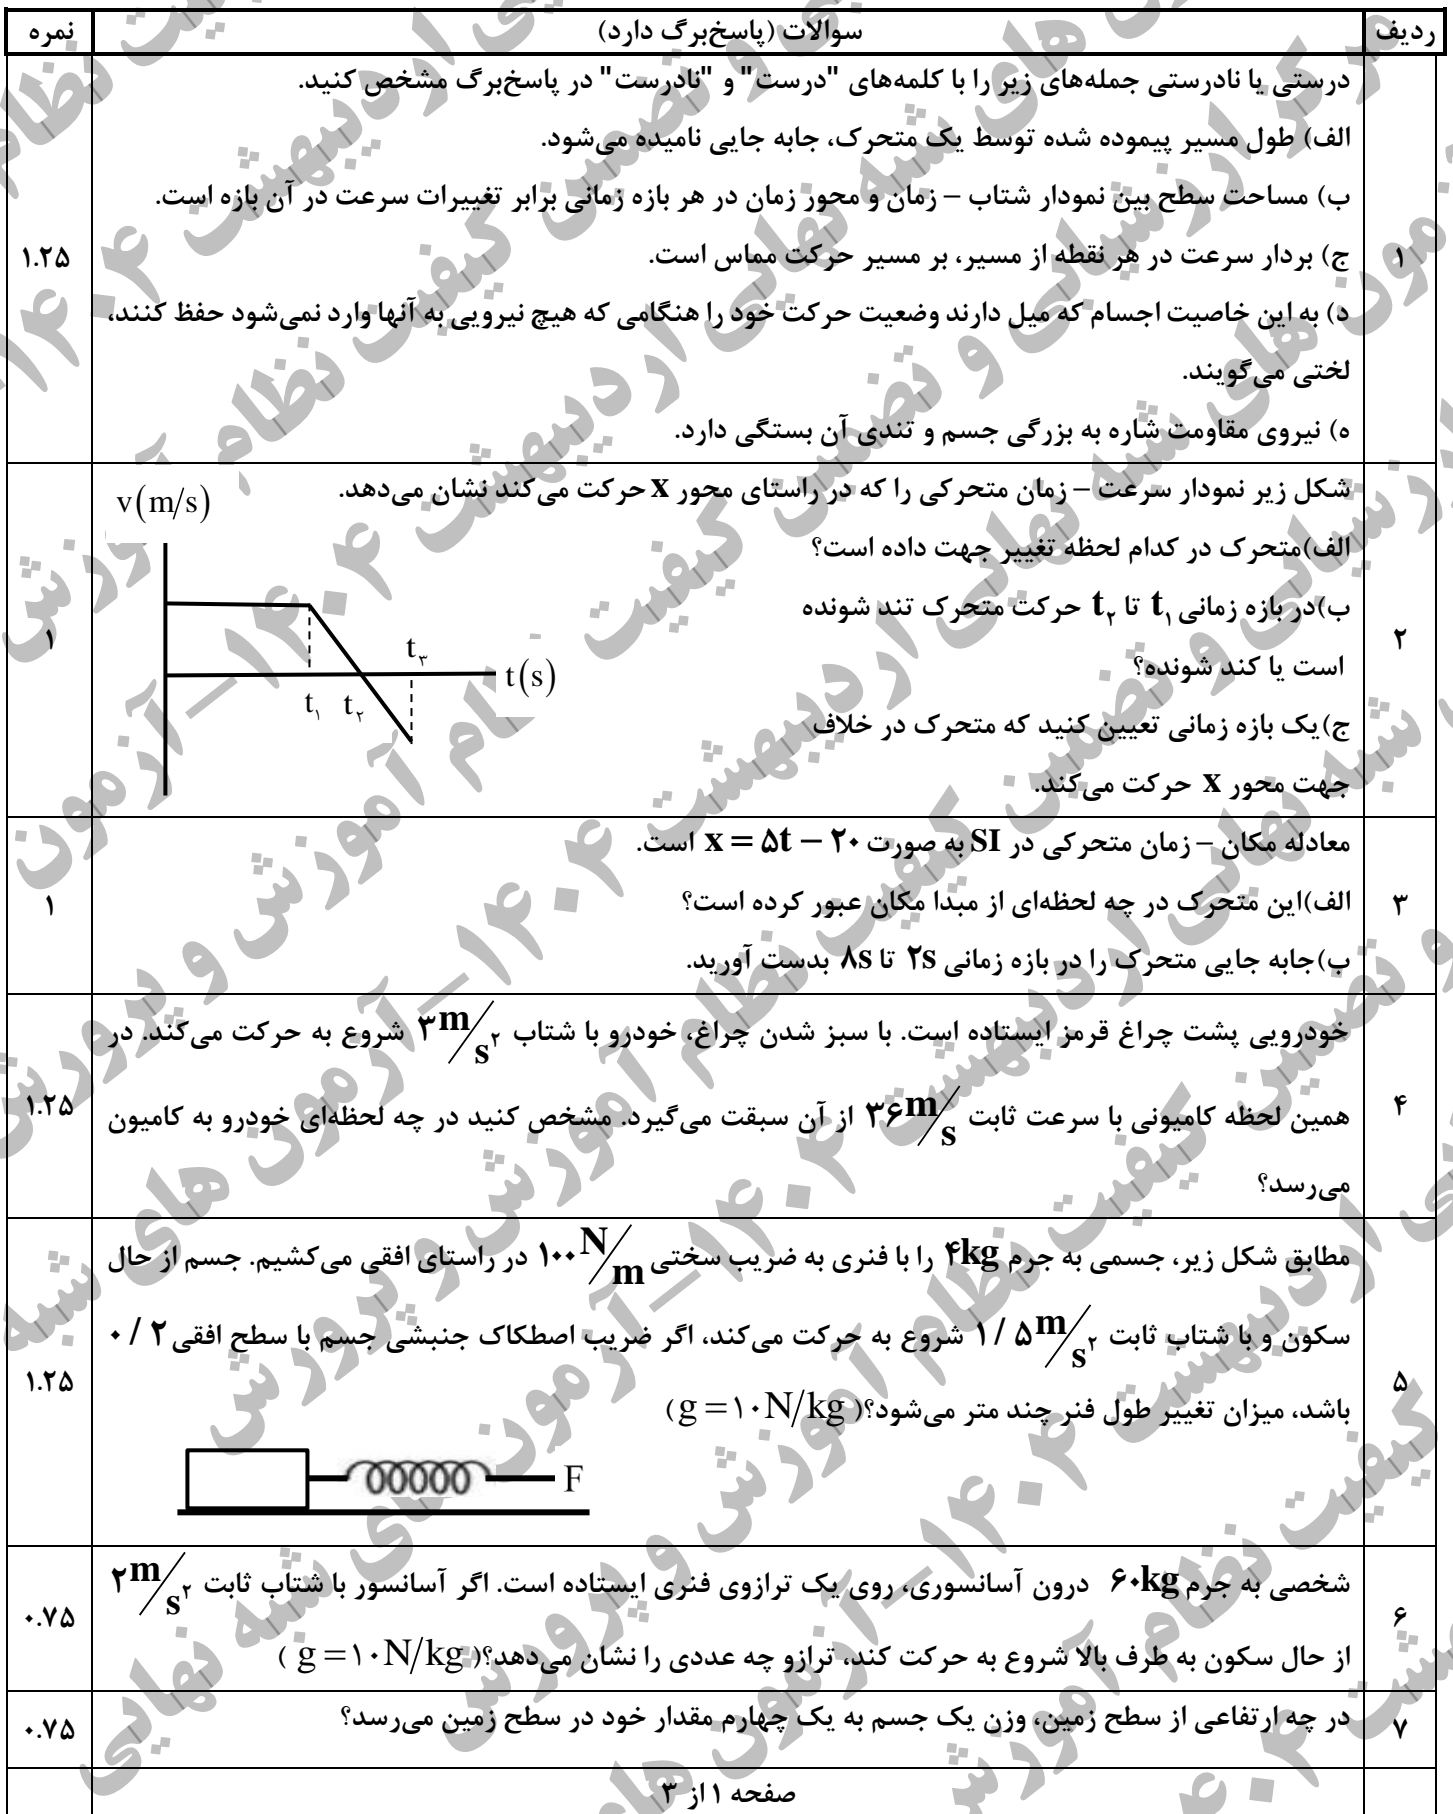 ردیف سوالات (پاسخ‌برگ دارد) نمره
درستی یا نادرستی جمله‌های زیر را با کلمه‌های "درست" و "نادرست" در پاسخ‌برگ مشخص کنید.
الف) طول مسیر پیموده شده توسط یک متحرک، جابه جایی نامیده می‌شود.
ب) مساحت سطح بین نمودار شتاب – زمان و محور زمان در هر بازه زمانی برابر تغییرات سرعت در آن بازه است.
۱ ج) بردار سرعت در هر نقطه از مسیر، بر مسیر حرکت مماس است. ۱.۲۵
د) به این خاصیت اجسام که میل دارند وضعیت حرکت خود را هنگامی که هیچ نیرویی به آنها وارد نمی‌شود حفظ کنند،
لختی می‌گویند.
ه) نیروی مقاومت شاره به بزرگی جسم و تندی آن بستگی دارد.
شکل زیر نمودار سرعت – زمان متحرکی را که در راستای محور x حرکت می‌کند نشان می‌دهد.
v(m/s)
الف)متحرک در کدام لحظه تغییر جهت داده است؟
ب)در بازه زمانی t۱ تا t۲ حرکت متحرک تند شونده
۲ ۱
است یا کند شونده؟
t۳ t(s)
t۱ t۲
ج)یک بازه زمانی تعیین کنید که متحرک در خلاف
جهت محور x حرکت می‌کند.
معادله مکان – زمان متحرکی در SI به صورت x = ۵t – ۲۰ است.
۳ الف)این متحرک در چه لحظه‌ای از مبدا مکان عبور کرده است؟ ۱
ب)جابه جایی متحرک را در بازه زمانی ۲s تا ۸s بدست آورید.
خودرویی پشت چراغ قرمز ایستاده است. با سبز شدن چراغ، خودرو با شتاب ۳m/s۲ شروع به حرکت می‌کند. در
۴ همین لحظه کامیونی با سرعت ثابت ۳۶m/s از آن سبقت می‌گیرد. مشخص کنید در چه لحظه‌ای خودرو به کامیون ۱.۲۵
می‌رسد؟
مطابق شکل زیر، جسمی به جرم ۴kg را با فنری به ضریب سختی ۱۰۰N/m در راستای افقی می‌کشیم. جسم از حال
سکون و با شتاب ثابت ۱/۵m/s۲ شروع به حرکت می‌کند، اگر ضریب اصطکاک جنبشی جسم با سطح افقی ۰/۲
۵ ۱.۲۵
باشد، میزان تغییر طول فنر چند متر می‌شود؟( g=۱۰N/kg)
F
شخصی به جرم ۶۰kg درون آسانسوری، روی یک ترازوی فنری ایستاده است. اگر آسانسور با شتاب ثابت ۲m/s۲
۶ ۰.۷۵
از حال سکون به طرف بالا شروع به حرکت کند، ترازو چه عددی را نشان می‌دهد؟( g=۱۰N/kg )
۷ در چه ارتفاعی از سطح زمین، وزن یک جسم به یک چهارم مقدار خود در سطح زمین می‌رسد؟ ۰.۷۵
صفحه ۱ از ۳
مرکز ارزشیابی و تضمین کیفیت نظام آموزش و پرورش
آزمون های شبه نهایی اردیبهشت ۱۴۰۴